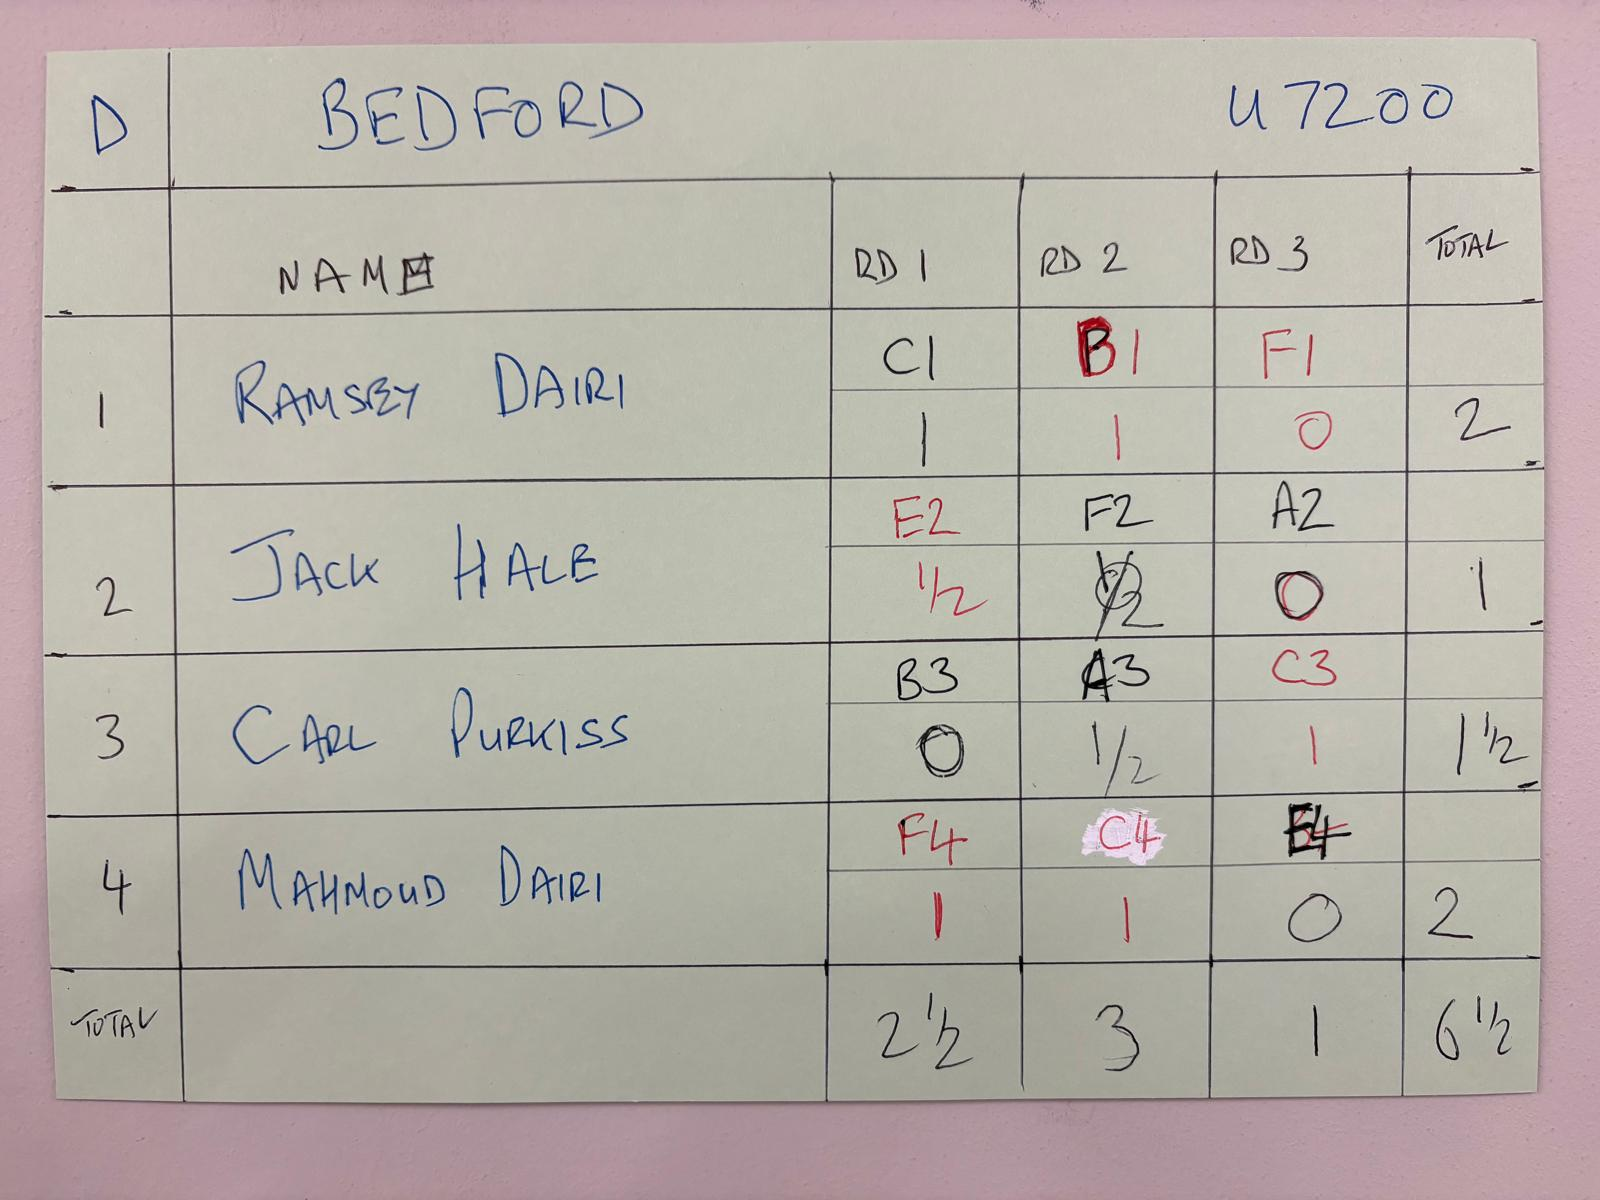 D BEDFORD U7200
NAME RD 1 RD 2 RD 3 TOTAL
C1 B1 F1
1 RAMSEY DAIRI 1 1 0 2
E2 F2 A2
2 JACK HALE 1/2 1/2 0 1
B3 A3 C3
3 CARL PURKISS 0 1/2 1 1 1/2
F4 C4 E4
4 MAHMOUD DAIRI 1 1 0 2
TOTAL 2 1/2 3 1 6 1/2